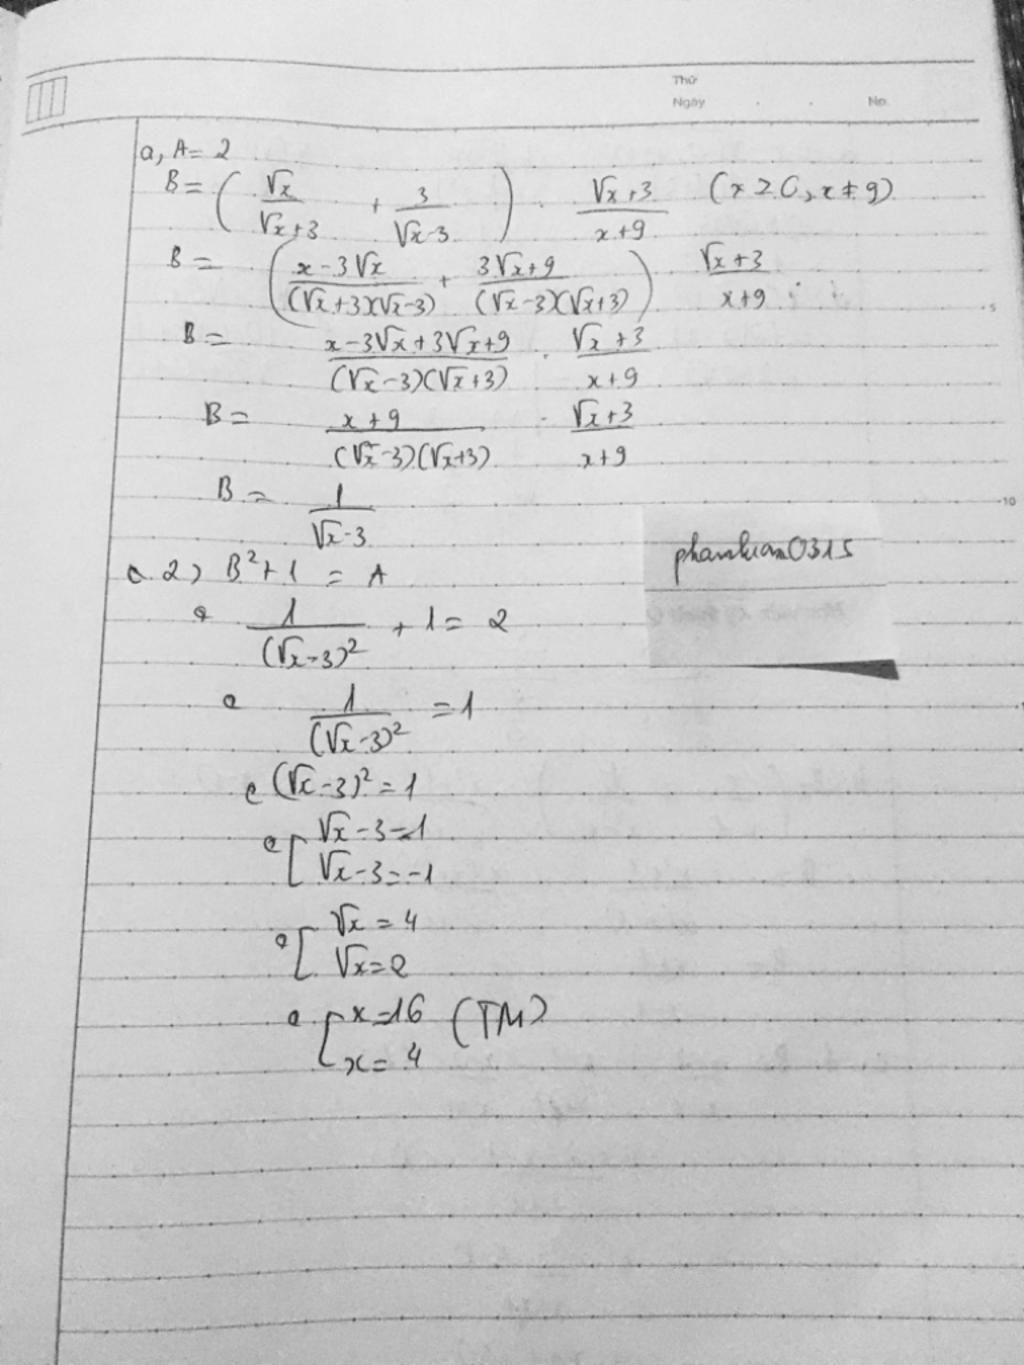 Thứ
Ngày . . No.
a, A = 2
B = ( √x/(√x+3) + 3/(√x-3) ) . (√x+3)/(x+9) (x ≥ 0, x ≠ 9)
B = ( (x-3√x)/((√x+3)(√x-3)) + (3√x+9)/((√x-3)(√x+3)) ) . (√x+3)/(x+9)
5
B = (x-3√x+3√x+9)/((√x-3)(√x+3)) . (√x+3)/(x+9)
B = (x+9)/((√x-3)(√x+3)) . (√x+3)/(x+9)
B = 1/(√x-3)
10
phamkiam0315
2) B²+1 = A
1/(√x-3)² + 1 = 2
1/(√x-3)² = 1
(√x-3)² = 1
[ √x-3=1
√x-3=-1
[ √x = 4
√x=2
[ x=16 (TM)
x = 4